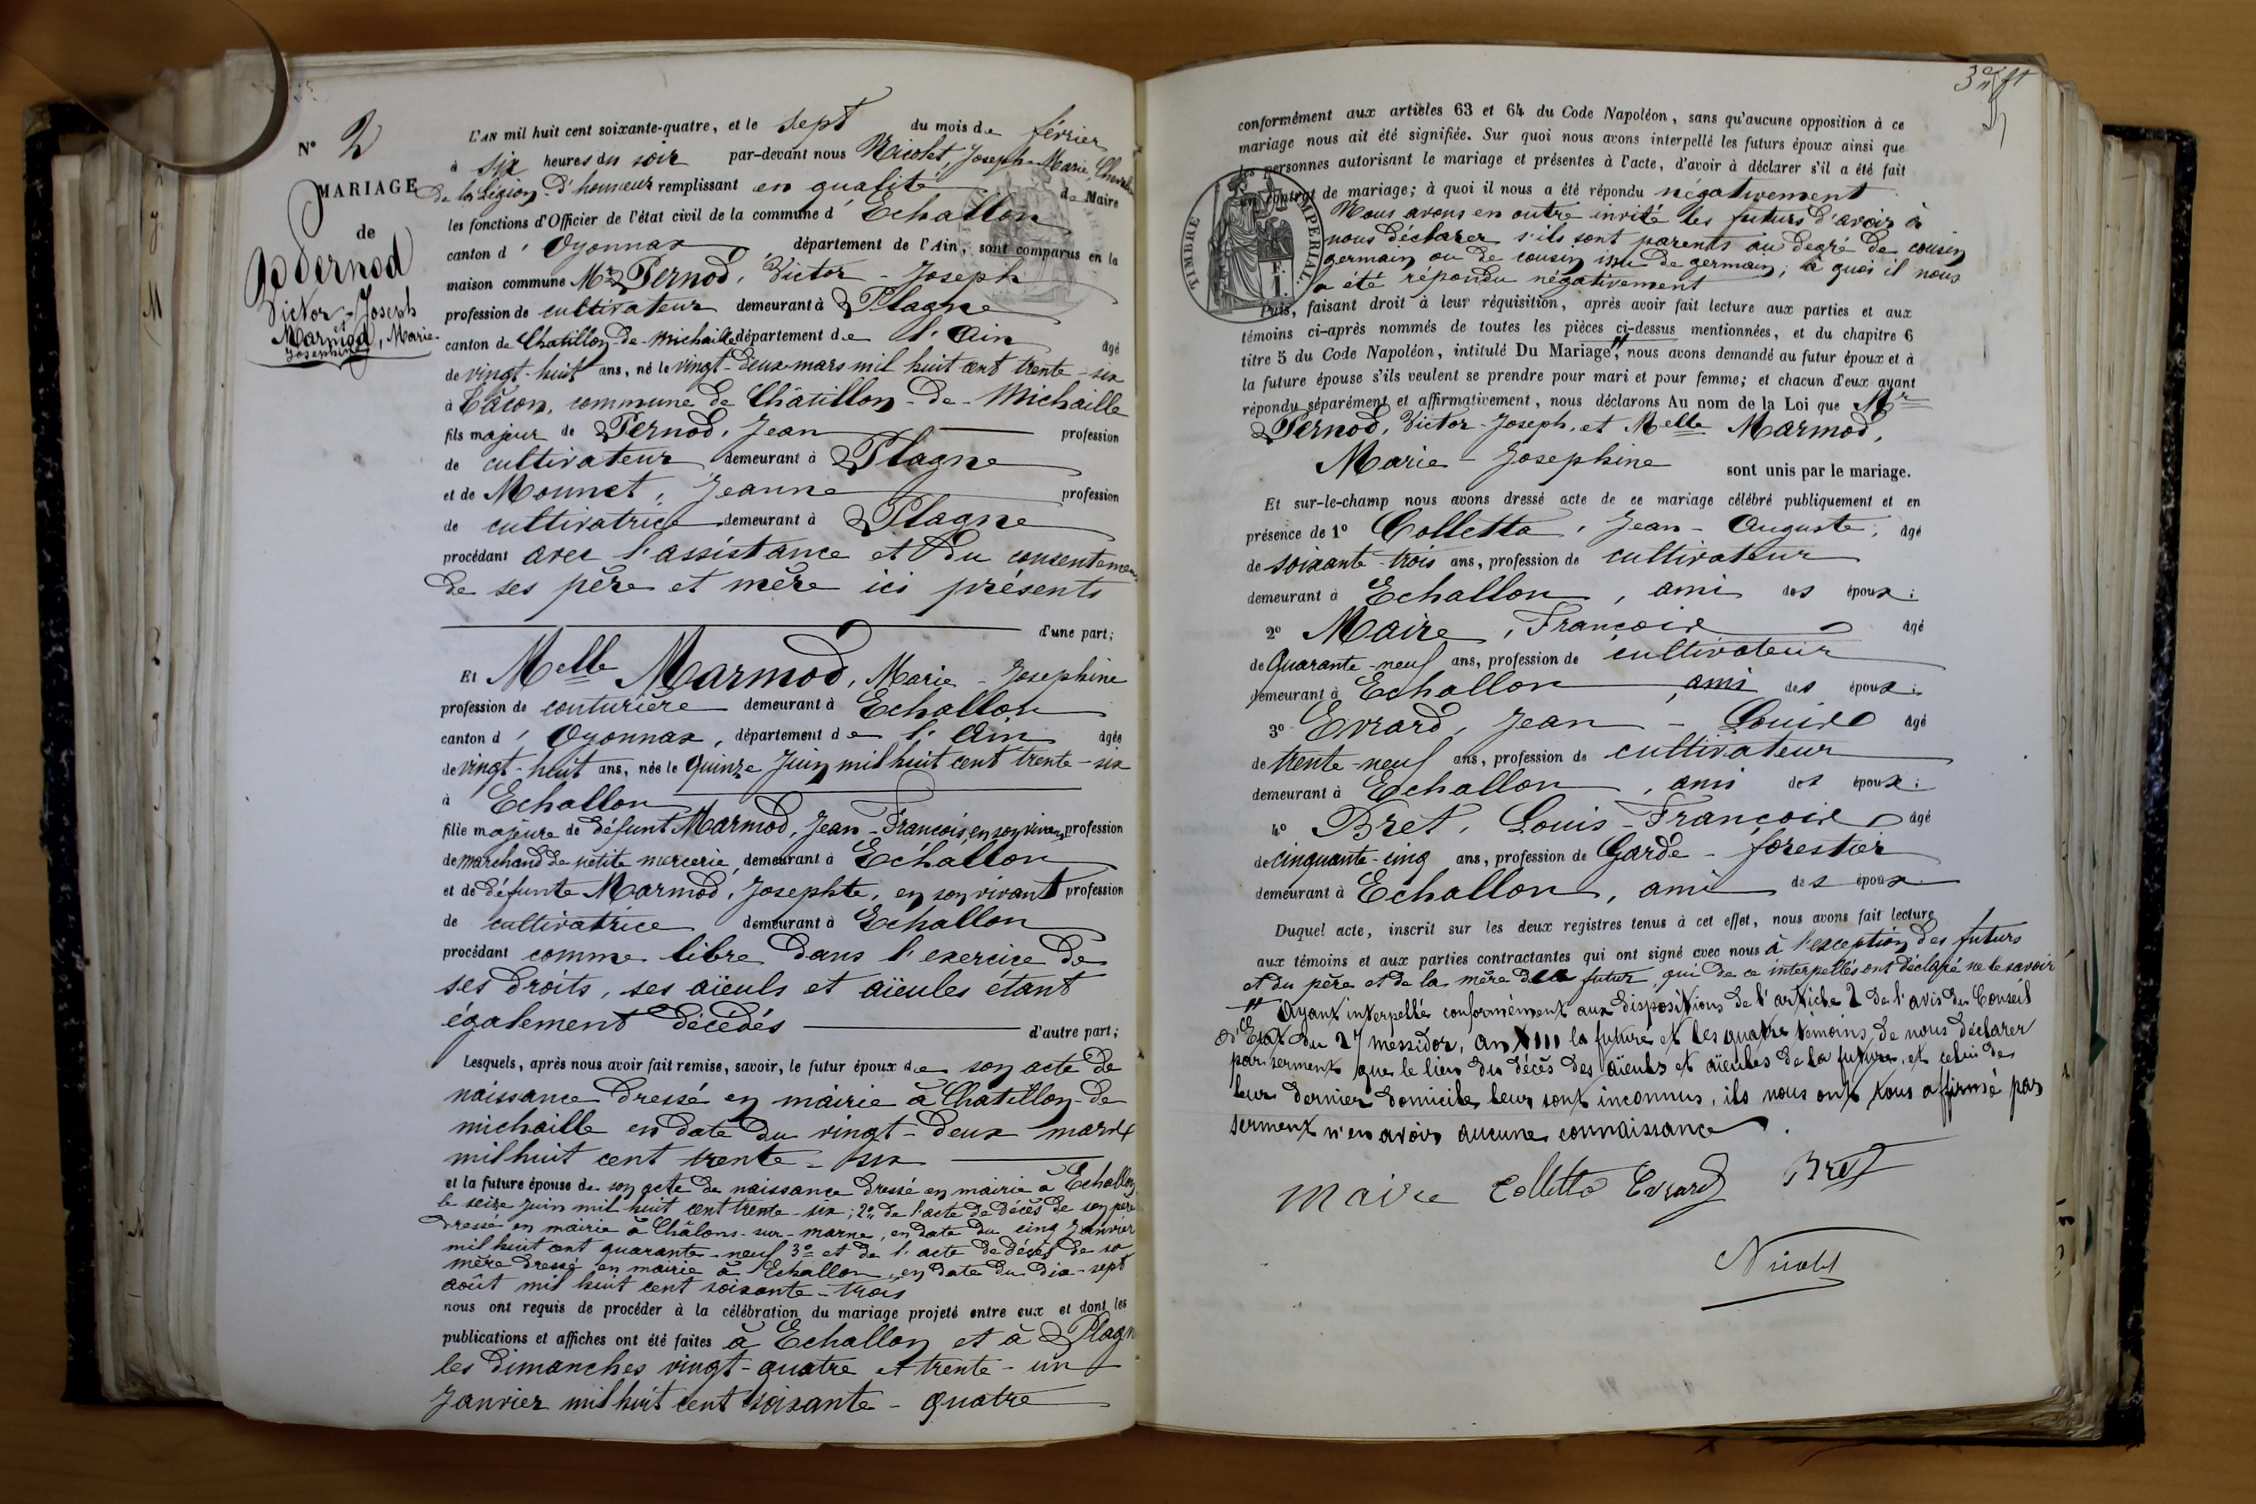 N° 2
MARIAGE
de
Pernod
Victor-Joseph
et
Marmod, Marie
Josephine
L'AN mil huit cent soixante-quatre, et le sept du mois de février
à six heures du soir par-devant nous Nicolet, Joseph-Marie, Chevalier
de la Légion d'honneur remplissant en qualité de Maire
les fonctions d'Officier de l'état civil de la commune d'Echallon
canton d'Oyonnax département de l'Ain, sont comparus en la
maison commune Mr Pernod, Victor-Joseph
profession de cultivateur demeurant à Plagne
canton de Chatillon-de-Michaille département de l'Ain âgé
de vingt-huit ans, né le vingt-deux mars mil huit cent trente-six
à Tâcon, commune de Châtillon-de-Michaille
fils majeur de Pernod, Jean profession
de cultivateur demeurant à Plagne
et de Mounet, Jeanne profession
de cultivatrice demeurant à Plagne
procédant avec l'assistance et du consentement
de ses père et mère ici présents
d'une part;
Et Melle Marmod, Marie-Josephine
profession de couturière demeurant à Echallon
canton d'Oyonnax, département de l'Ain âgée
de vingt-huit ans, née le quinze Juin mil huit cent trente-six
à Echallon
fille majeure de défunt Marmod, Jean-François, en son vivant profession
de marchand de petite mercerie, demeurant à Echallon
et de défunte Marmod, Josephte, en son vivant profession
de cultivatrice demeurant à Echallon
procédant comme libre dans l'exercice de
ses droits, ses aïeuls et aïeules étant
également décédés d'autre part;
Lesquels, après nous avoir fait remise, savoir, le futur époux de son acte de
naissance dressé en mairie à Chatillon-de
michaille en date du vingt-deux mars
mil huit cent trente-six
et la future épouse de son acte de naissance dressé en mairie à Echallon
le seize juin mil huit cent trente-six; 2° de l'acte de décès de son père
dressé en mairie à Châlons-sur-marne, en date du cinq Janvier
mil huit cent quarante-neuf 3° et de l'acte de décès de sa
mère dressé en mairie à Echallon, en date du dix-sept
août mil huit cent soixante-trois
nous ont requis de procéder à la célébration du mariage projeté entre eux et dont les
publications et affiches ont été faites à Echallon et à Plagne
les dimanches vingt-quatre et trente-un
Janvier mil huit cent soixante-quatre
conformément aux articles 63 et 64 du Code Napoléon, sans qu'aucune opposition à ce
mariage nous ait été signifiée. Sur quoi nous avons interpellé les futurs époux ainsi que
les personnes autorisant le mariage et présentes à l'acte, d'avoir à déclarer s'il a été fait
un contrat de mariage; à quoi il nous a été répondu négativement
Nous avons en outre invité les futurs d'avoir à
nous déclarer s'ils sont parents au degré de cousin
germain ou de cousin issu de germain; à quoi il nous
a été répondu négativement
TIMBRE IMPERIAL
Puis, faisant droit à leur réquisition, après avoir fait lecture aux parties et aux
témoins ci-après nommés de toutes les pièces ci-dessus mentionnées, et du chapitre 6
titre 5 du Code Napoléon, intitulé Du Mariage, nous avons demandé au futur époux et à
la future épouse s'ils veulent se prendre pour mari et pour femme; et chacun d'eux ayant
répondu séparément et affirmativement, nous déclarons Au nom de la Loi que Mr
Pernod, Victor-Joseph, et Melle Marmod,
Marie-Josephine sont unis par le mariage.
Et sur-le-champ nous avons dressé acte de ce mariage célébré publiquement et en
présence de 1° Colletta, Jean-Auguste, âgé
de soixante-trois ans, profession de cultivateur
demeurant à Echallon, ami des époux;
2° Maire, François âgé
de quarante-neuf ans, profession de cultivateur
demeurant à Echallon ami des époux;
3° Evrard, Jean-Louis âgé
de trente-neuf ans, profession de cultivateur
demeurant à Echallon, ami des époux;
4° Bret, Louis-François âgé
de cinquante-cinq ans, profession de Garde-forestier
demeurant à Echallon, ami des époux
Duquel acte, inscrit sur les deux registres tenus à cet effet, nous avons fait lecture
aux témoins et aux parties contractantes qui ont signé avec nous à l'exception des futurs
et du père et de la mère du futur, qui de ce interpellés ont déclaré ne le savoir
Ayant interpellé conformément aux dispositions de l'article 2 de l'avis du Conseil
d'Etat du 27 messidor, an XIII la future et les quatre témoins, de nous déclarer
par serment que le lieu du décès des aïeuls et aïeules de la future, et celui de
leur dernier domicile leur sont inconnus, ils nous ont tous affirmé par
serment n'en avoir aucune connaissance.
Maire Colletta Evrard Bret
Nicolet